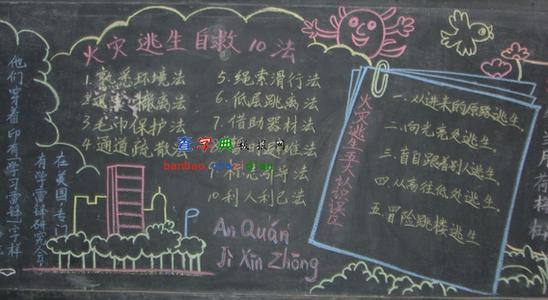 他们穿着印有"学习雷锋"字样
在美国,专门
有学雷锋研究会
火灾逃生自救10法
1.熟悉环境法
2.迅速撤离法
3.毛巾保护法
4.通道疏散
5.绳索滑行法
6.低层跳离法
7.借助器材法
10.利人利己法
查字典 板报网
banbao.chazidian.com
An Quán
Jì Xīn Zhōng
火灾逃生五大认识误区
一.从进来的原路逃生
二.向光亮处逃生
三.盲目跟着别人逃生
四.从高往低处逃生
五.冒险跳楼逃生